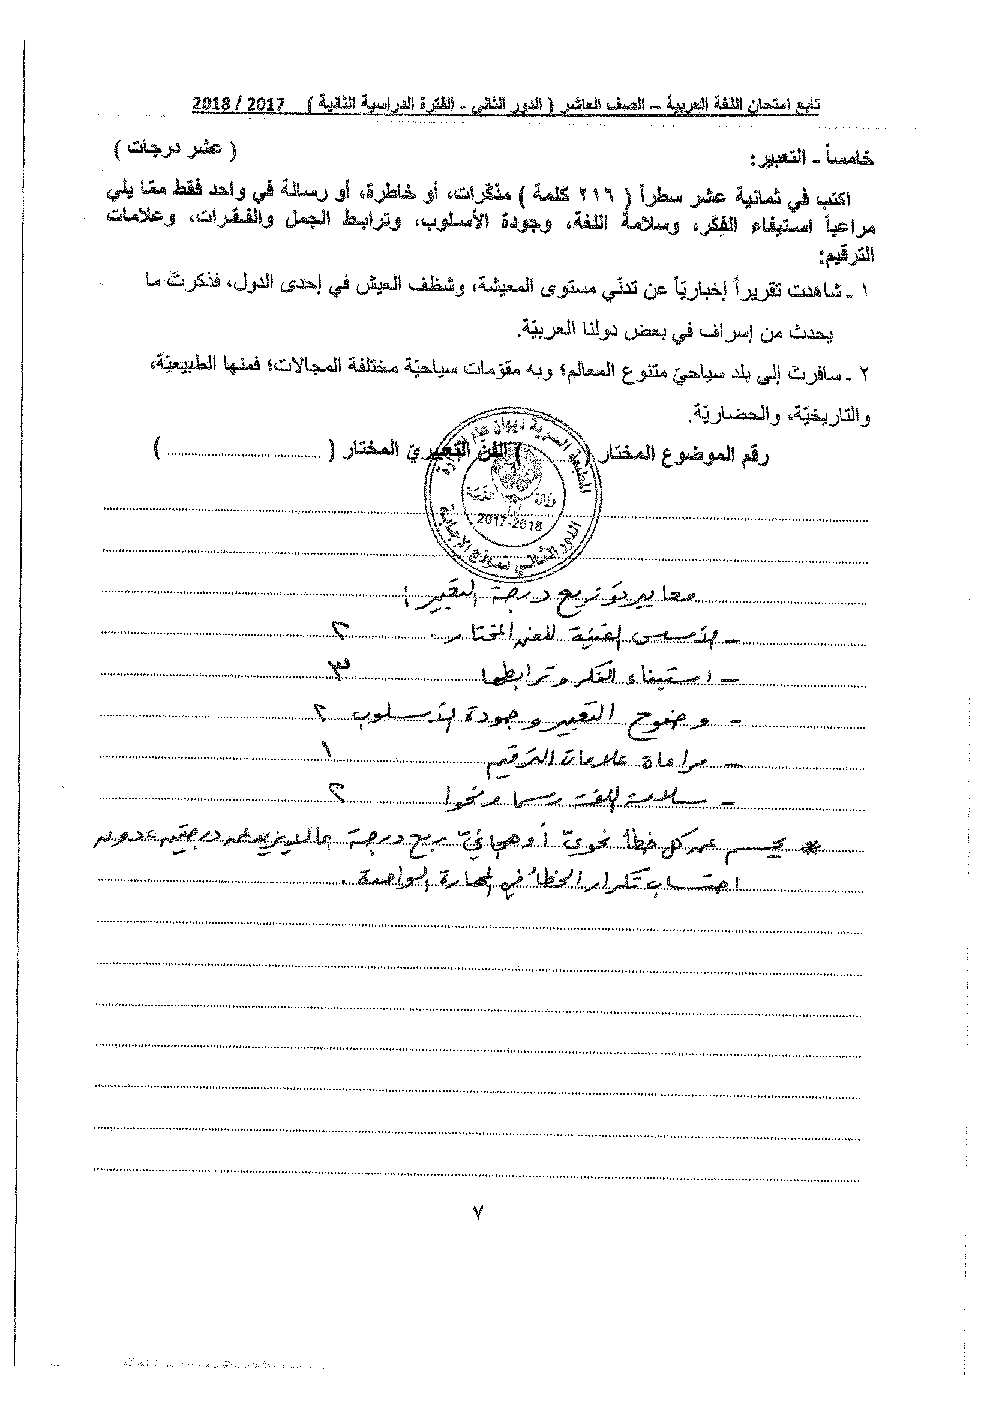 تابع امتحان اللغة العربية – الصف العاشر ( الدور الثاني - الفترة الدراسية الثانية ) 2017 / 2018
خامساً - التعبير: ( عشر درجات )
اكتب في ثمانية عشر سطراً ( ٢١٦ كلمة ) مذكّرات، أو خاطرة، أو رسالة في واحد فقط ممّا يلي
مراعياً استيفاء الفِكَر، وسلامة اللغة، وجودة الأسلوب، وترابط الجمل والفقرات، وعلامات
الترقيم:
١ - شاهدت تقريراً إخباريّاً عن تدنّي مستوى المعيشة، وشظف العيش في إحدى الدول، فذكرتَ ما
يحدث من إسراف في بعض دولنا العربيّة.
٢ - سافرتَ إلى بلد سياحيّ متنوع المعالم؛ وبه مقوّمات سياحيّة مختلفة المجالات؛ فمنها الطبيعيّة،
والتاريخيّة، والحضاريّة.
رقم الموضوع المختار ( ) الفنّ التعبيريّ المختار ( ............................ )
2017-2018
الدور الثاني نموذج الإجابة
معايير توزيع درجة التعبير :
– الأسس الفنية للفن المختار ٢
– استيفاء الفكر وترابطها ٣
– وضوح التعبير وجودة الأسلوب ٢
– مراعاة علامات الترقيم ١
– سلامة اللغة رسما ونحوا ٢
* يحسم عن كل خطأ نحويّ أو هجائيّ ربع درجة بما لا يزيد عن درجتين بدون
احتساب تكرار الخطأ في المهارة الواحدة .
٧